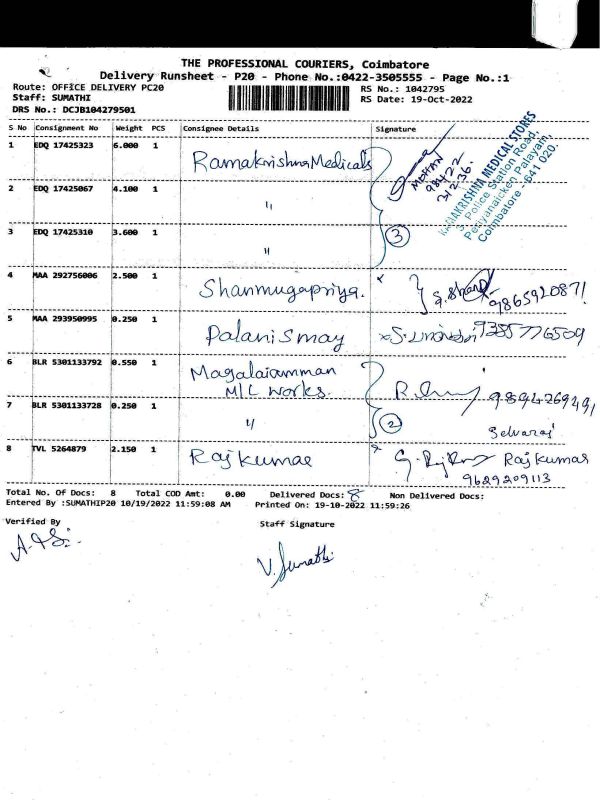 THE PROFESSIONAL COURIERS, Coimbatore
Delivery Runsheet - P20 - Phone No.:0422-3505555 - Page No.:1
Route: OFFICE DELIVERY PC20
RS No.: 1042795
Staff: SUMATHI
RS Date: 19-Oct-2022
DRS No.: DCJB104279501
S No Consignment No Weight PCS Consignee Details Signature
1 EDQ 17425323 6.000 1 Ramakrishna Medicals
MOHAN
98422
31236.
RAMAKRISHNA MEDICAL STORES
3, Police Station Road,
Periyanaicken Palayam,
Coimbatore - 641 020.
2 EDQ 17425067 4.100 1 "
3 EDQ 17425310 3.600 1 "
3
4 MAA 292756006 2.500 1 Shanmugapriya. 9865920871
5 MAA 293950995 0.250 1 Palanismay 9385776509
6 BLR 5301133792 0.550 1 Magalaiamman
M/C Works. 9894269491
7 BLR 5301133728 0.250 1 "
2
Selvaraj
8 TVL 5264879 2.150 1 Rajkumar Rajkumar
9629209113
Total No. Of Docs: 8 Total COD Amt: 0.00 Delivered Docs: 8 Non Delivered Docs:
Entered By :SUMATHIP20 10/19/2022 11:59:08 AM Printed On: 19-10-2022 11:59:26
Verified By Staff Signature
V. Sumathi